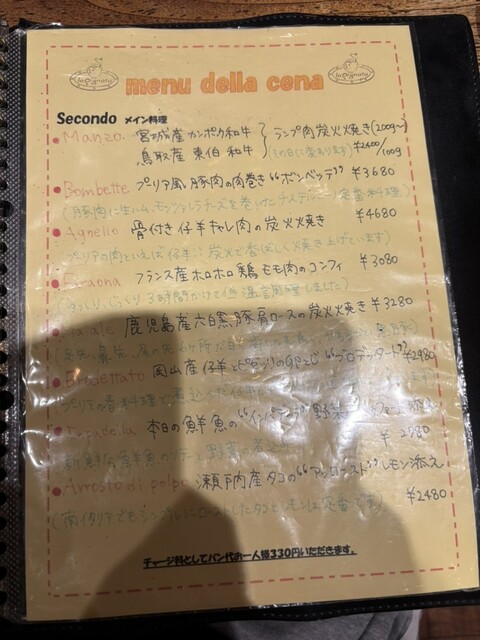 menu della cena
Secondo メイン料理
Manzo 宮城産カンポク和牛
鳥取産 東伯 和牛
ランプ肉炭火焼き(200g〜)
(その日に変わります) ¥2400/100g
Bombette プーリア風 豚肉の肉巻き“ボンベッテ” ¥3680
(豚肉に生ハム、モッツァレラチーズを巻いた 定番料理)
Agnello 骨付き仔羊キャレ肉の炭火焼き ¥4680
(プーリアの肉といえば仔羊、炭火で香ばしく焼き上げています)
Faraona フランス産ホロホロ鶏モモ肉のコンフィ ¥3080
(じっくり、じっくり3時間かけて低温調理しました)
鹿児島産六白黒豚肩ロースの炭火焼き ¥3280
Brodettato 岡山産仔羊と の “ブロデッタート” ¥2980
プーリアの 料理で 煮込んだ仔羊
本日の鮮魚の 野菜 添え
¥2980
新鮮な鮮魚のソテー 野菜の煮込み
Arrosto di polpo 瀬戸内産タコの“アッロースト”レモン添え
¥2480
(南イタリアでもシンプルにローストしたタコとレモンは定番です)
チャージ料としてパン代お一人様330円いただきます。